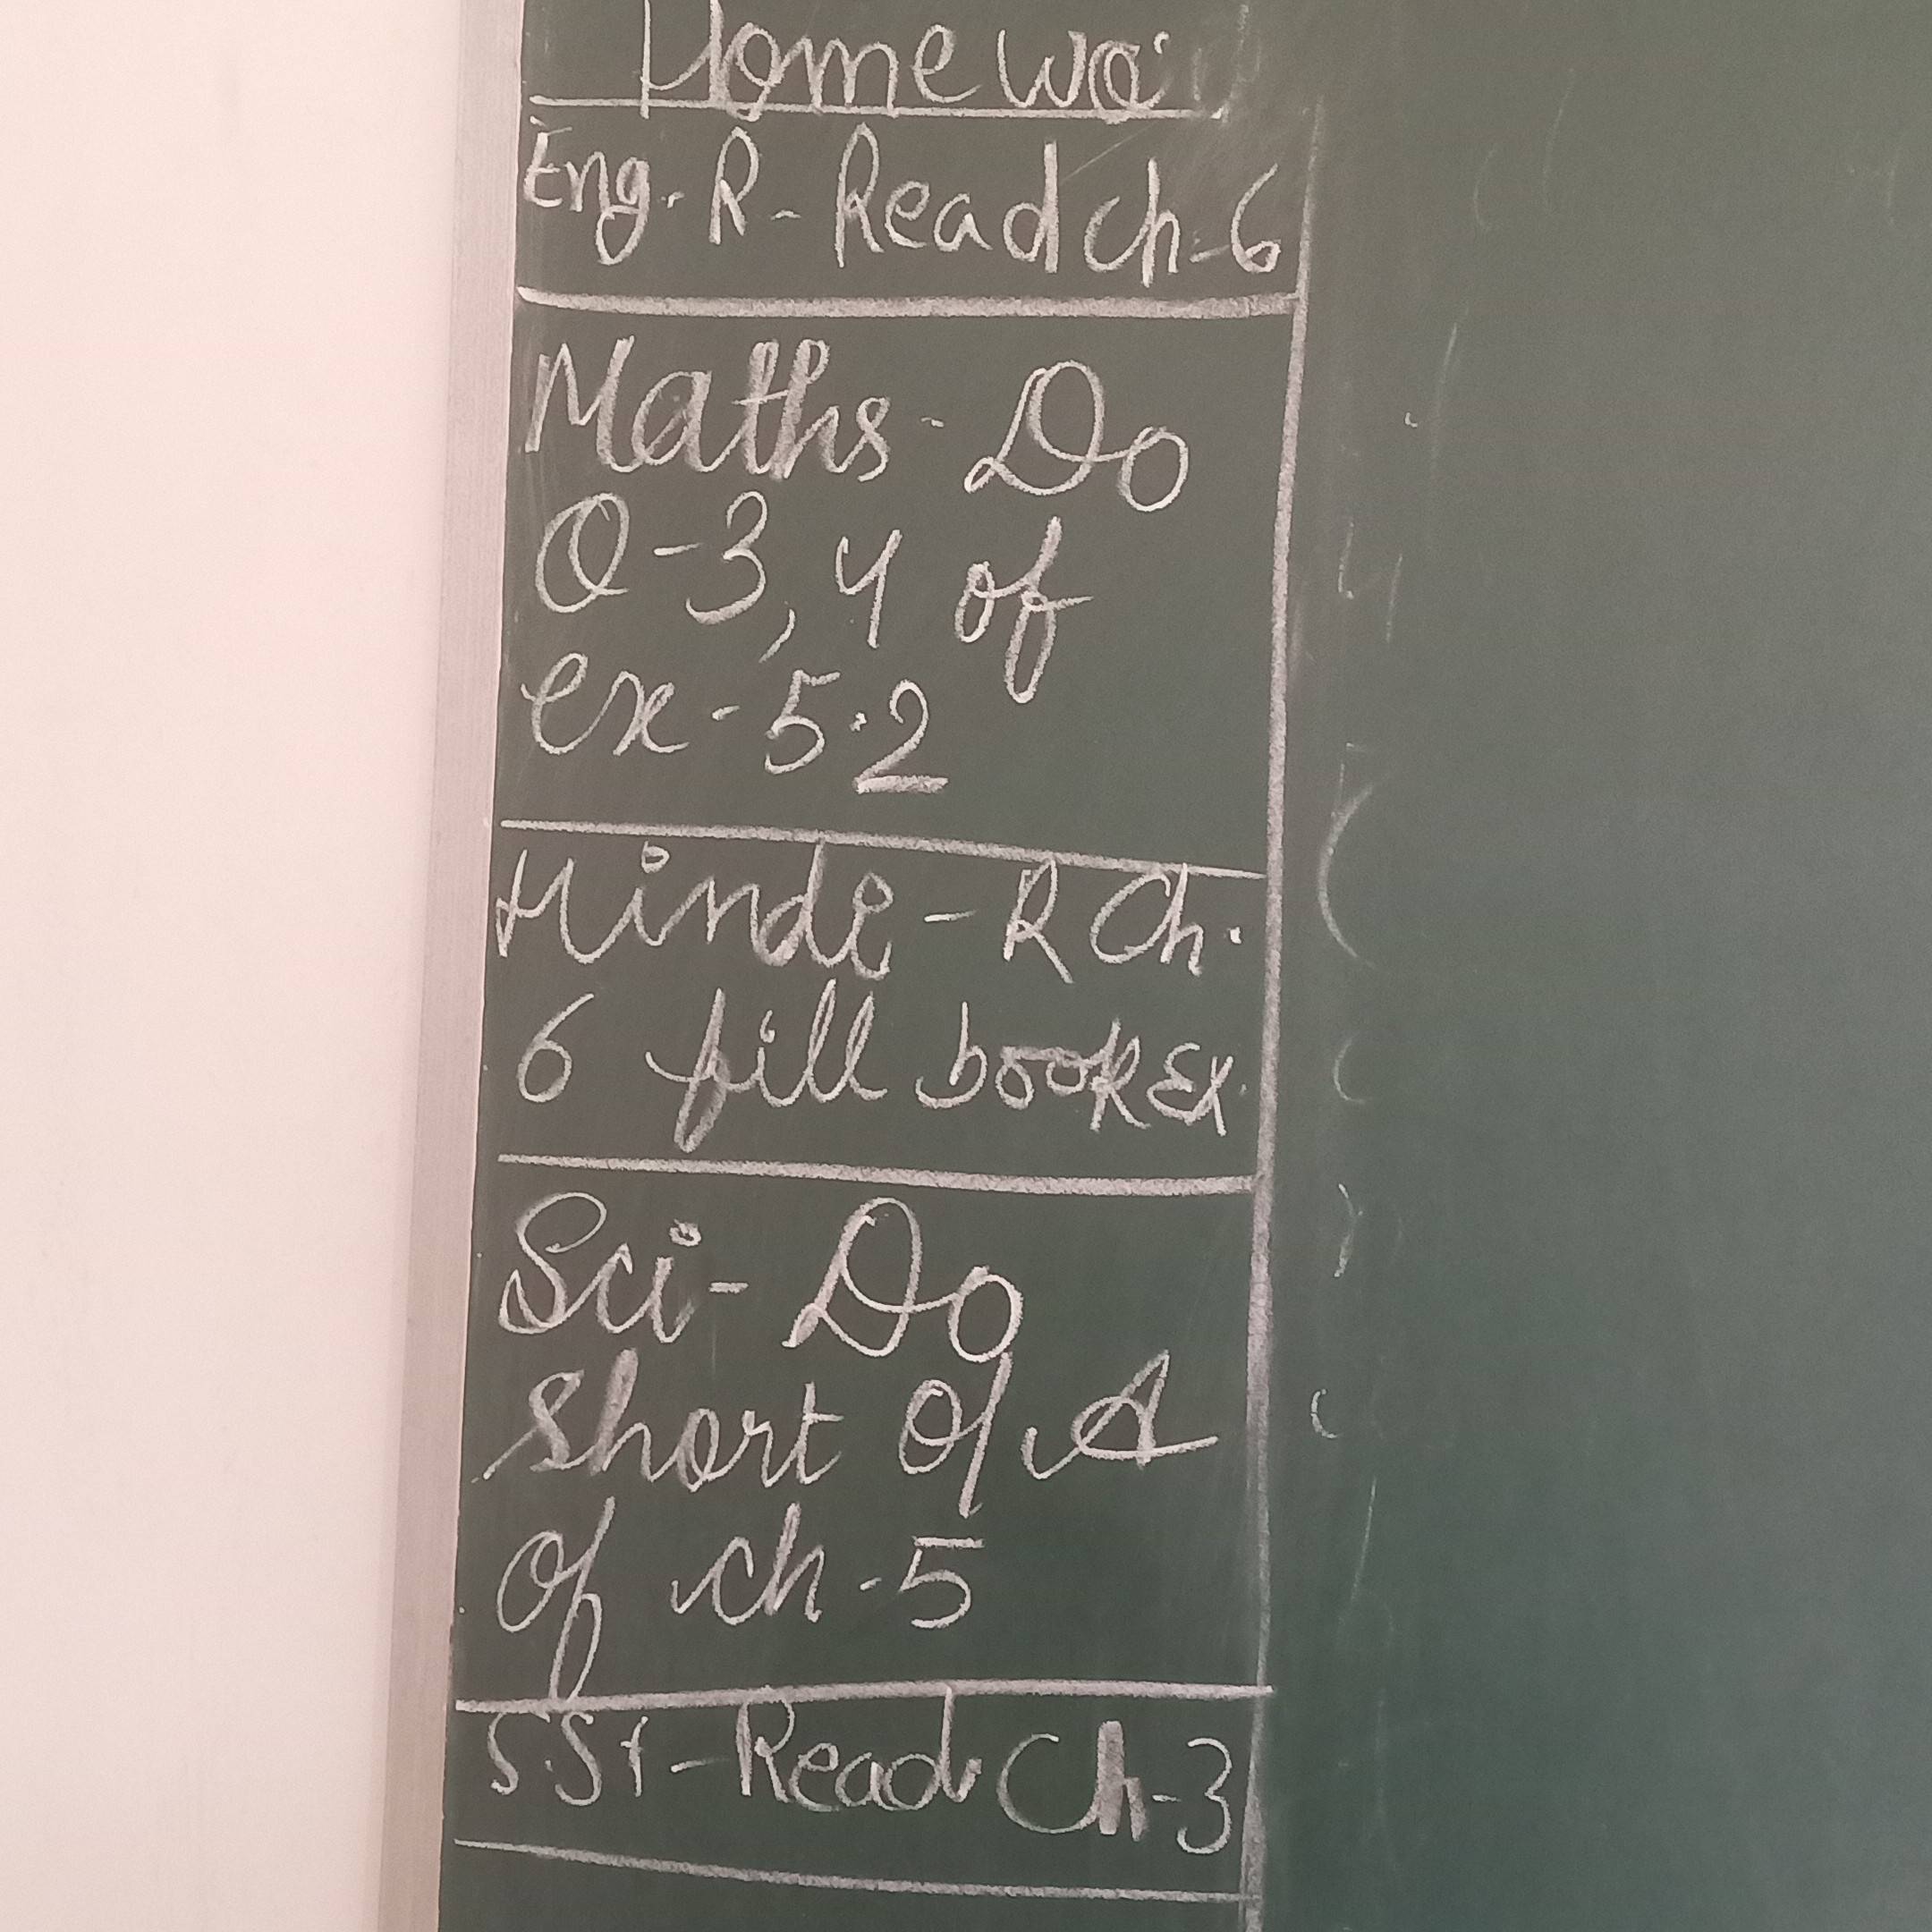 Homewo
Eng. R - Read Ch-6
Maths - Do
Q-3, 4 of
ex-5.2
Hindi - R Ch.
6 fill book Ex.
Sci - Do
short Q/A
of ch-5
S.St - Read Ch-3